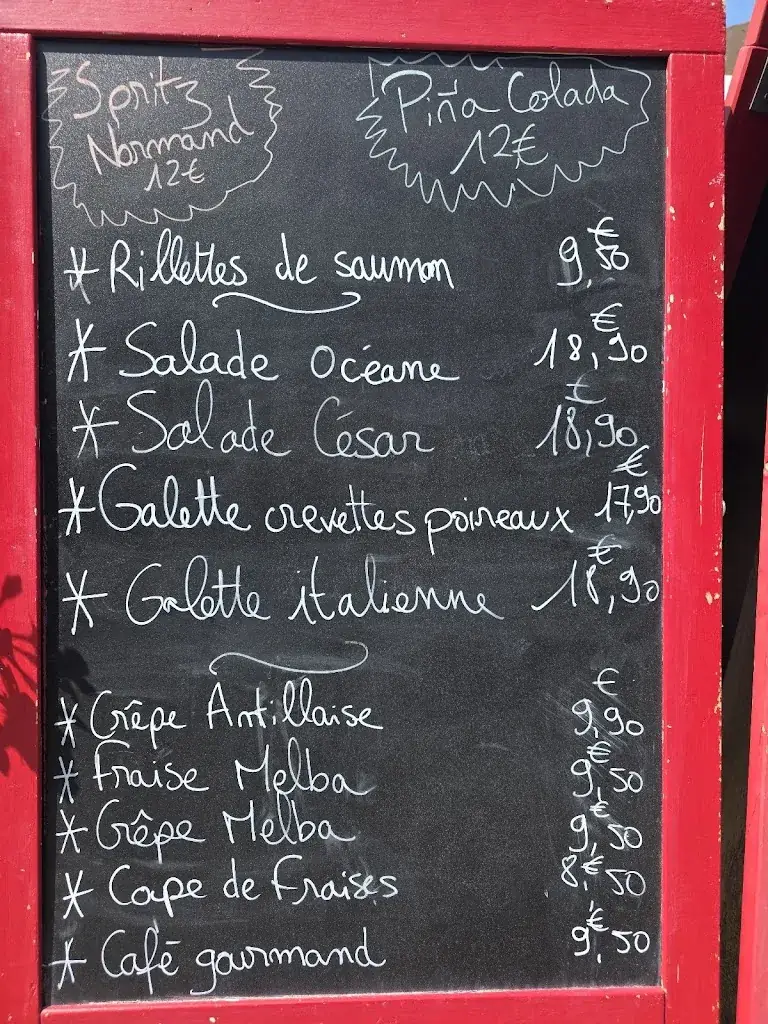 Spritz
Normand
12€
Piña Colada
12€
* Rillettes de saumon 9,€50
* Salade Océane 18,€90
* Salade César 18,€90
* Galette crevettes poireaux 17,€90
* Galette italienne 18,€90
* Crêpe Antillaise 9,€90
* Fraise Melba 9,€50
* Crêpe Melba 9,€50
* Coupe de Fraises 8,€50
* Café gourmand 9,€50